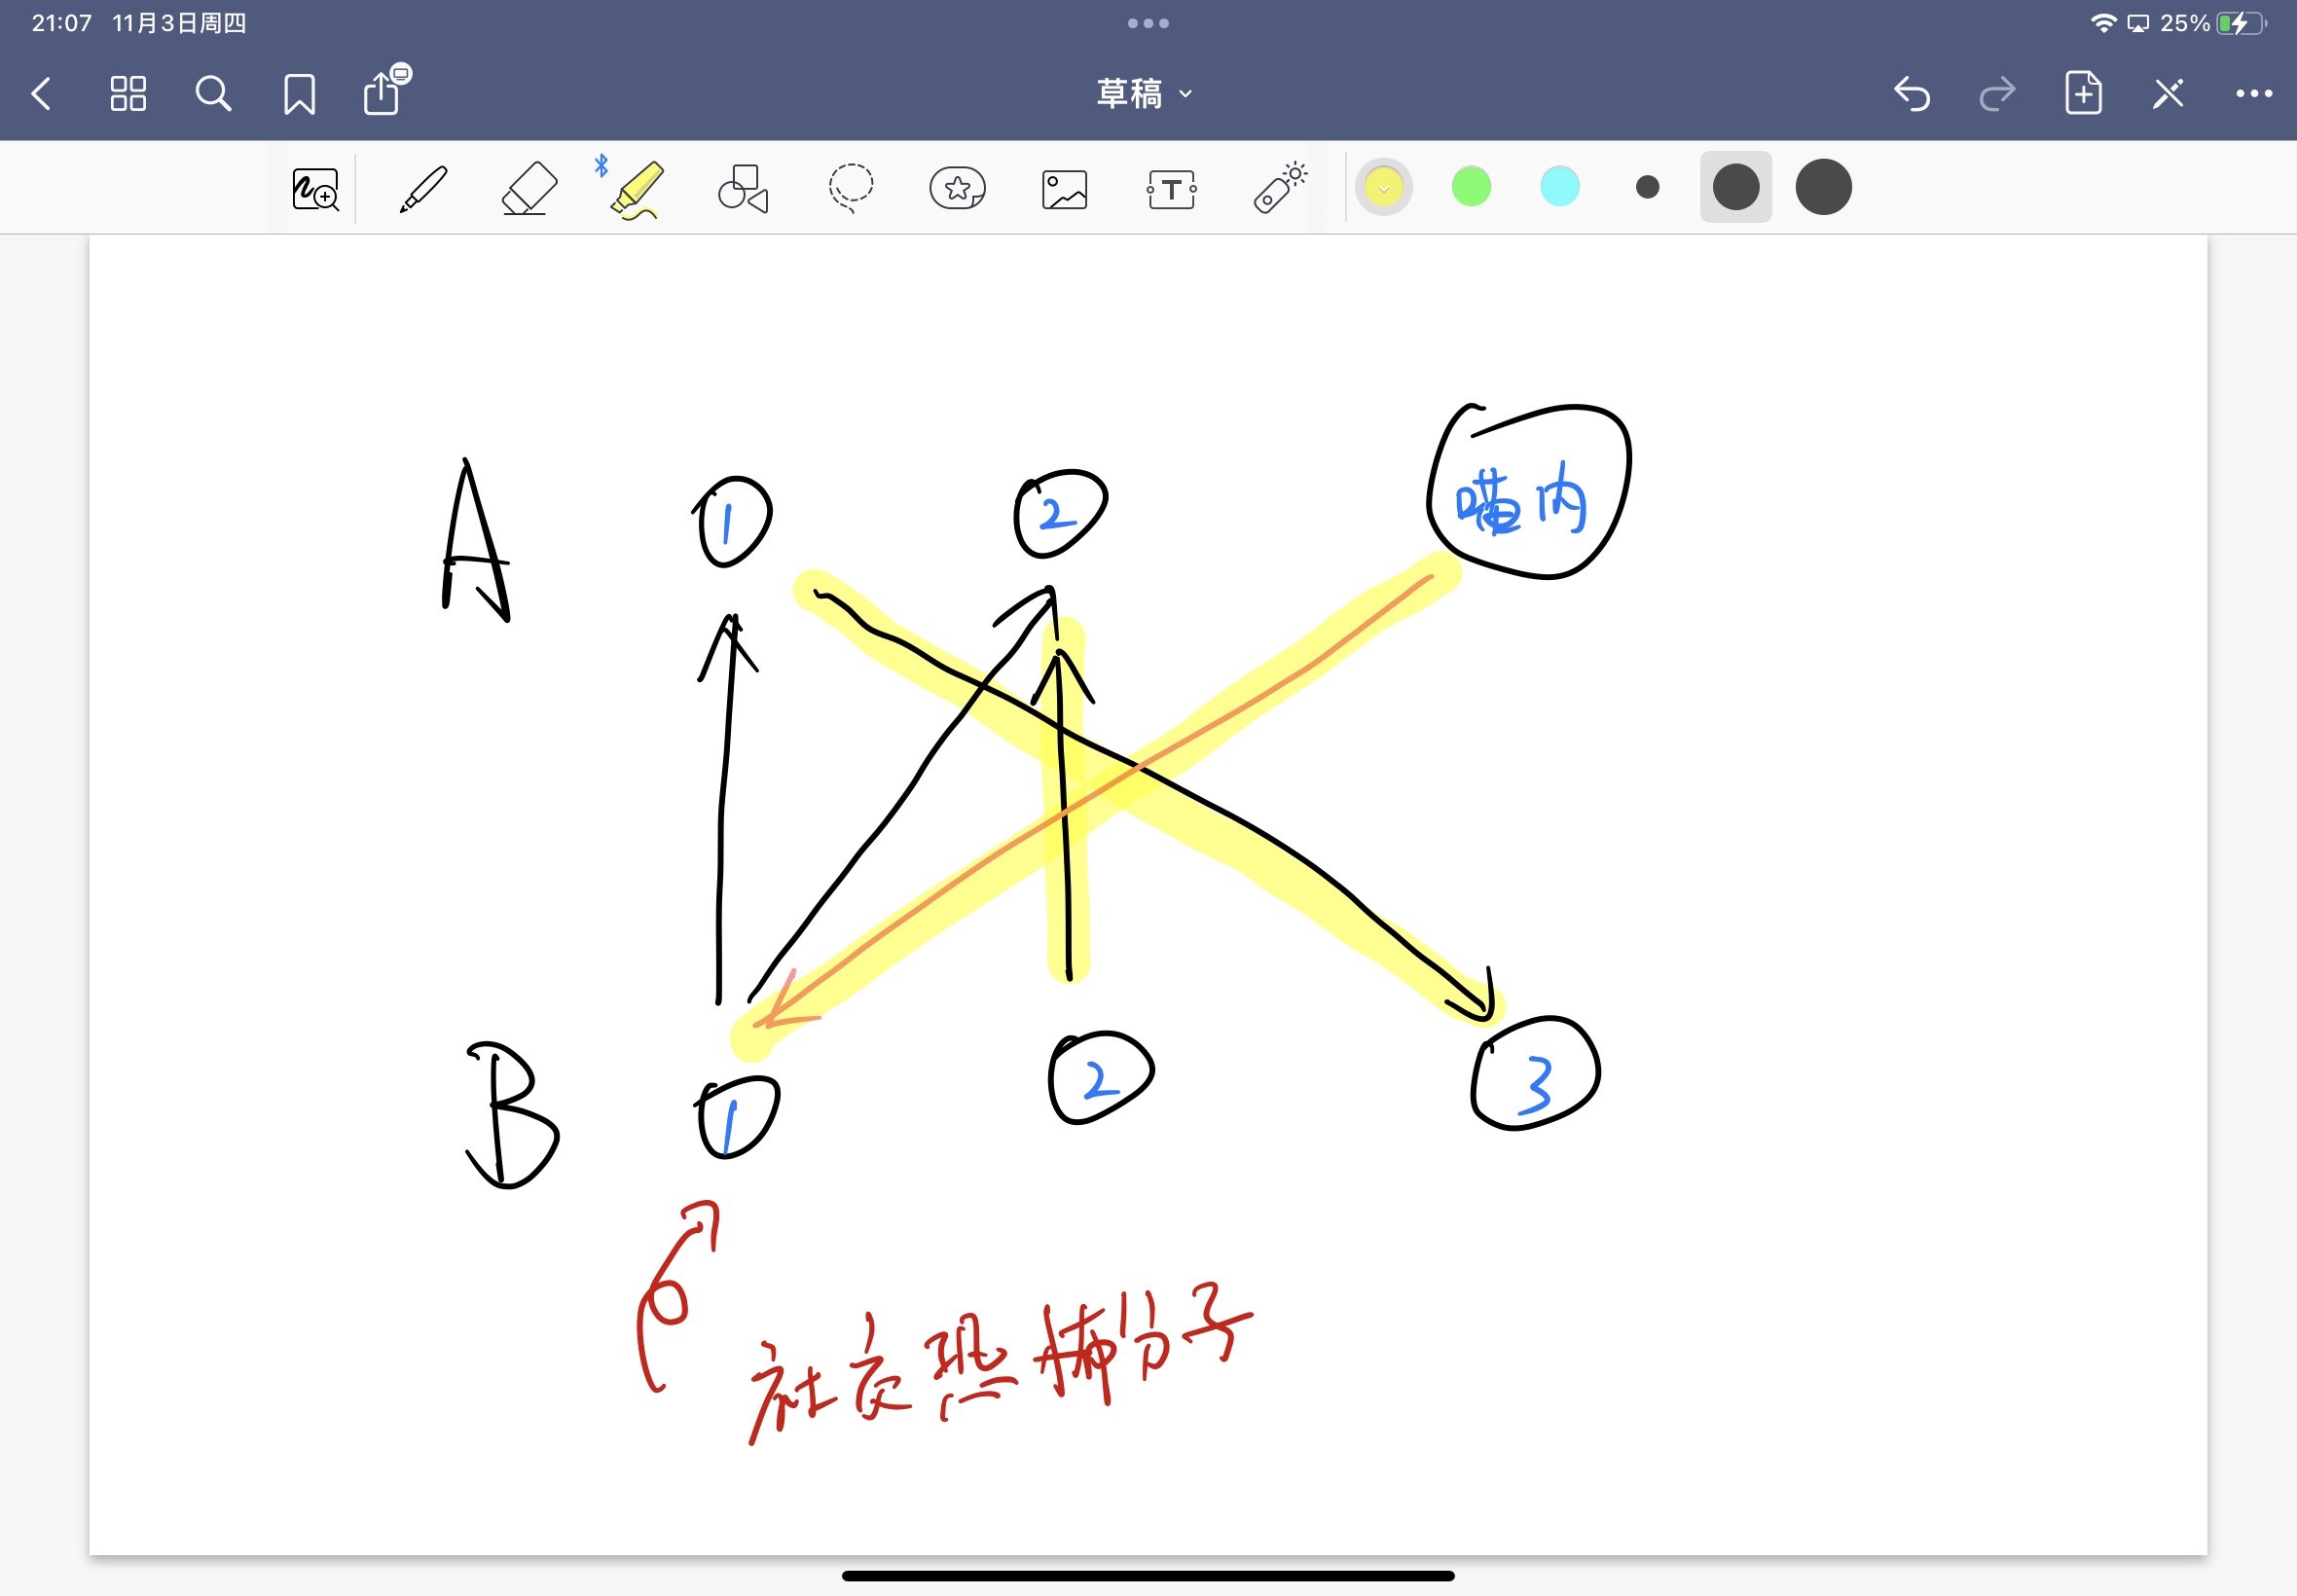 21:07 11月3日周四
25%
草稿
T
A 1 2 喵内
B 1 2 3
社恐